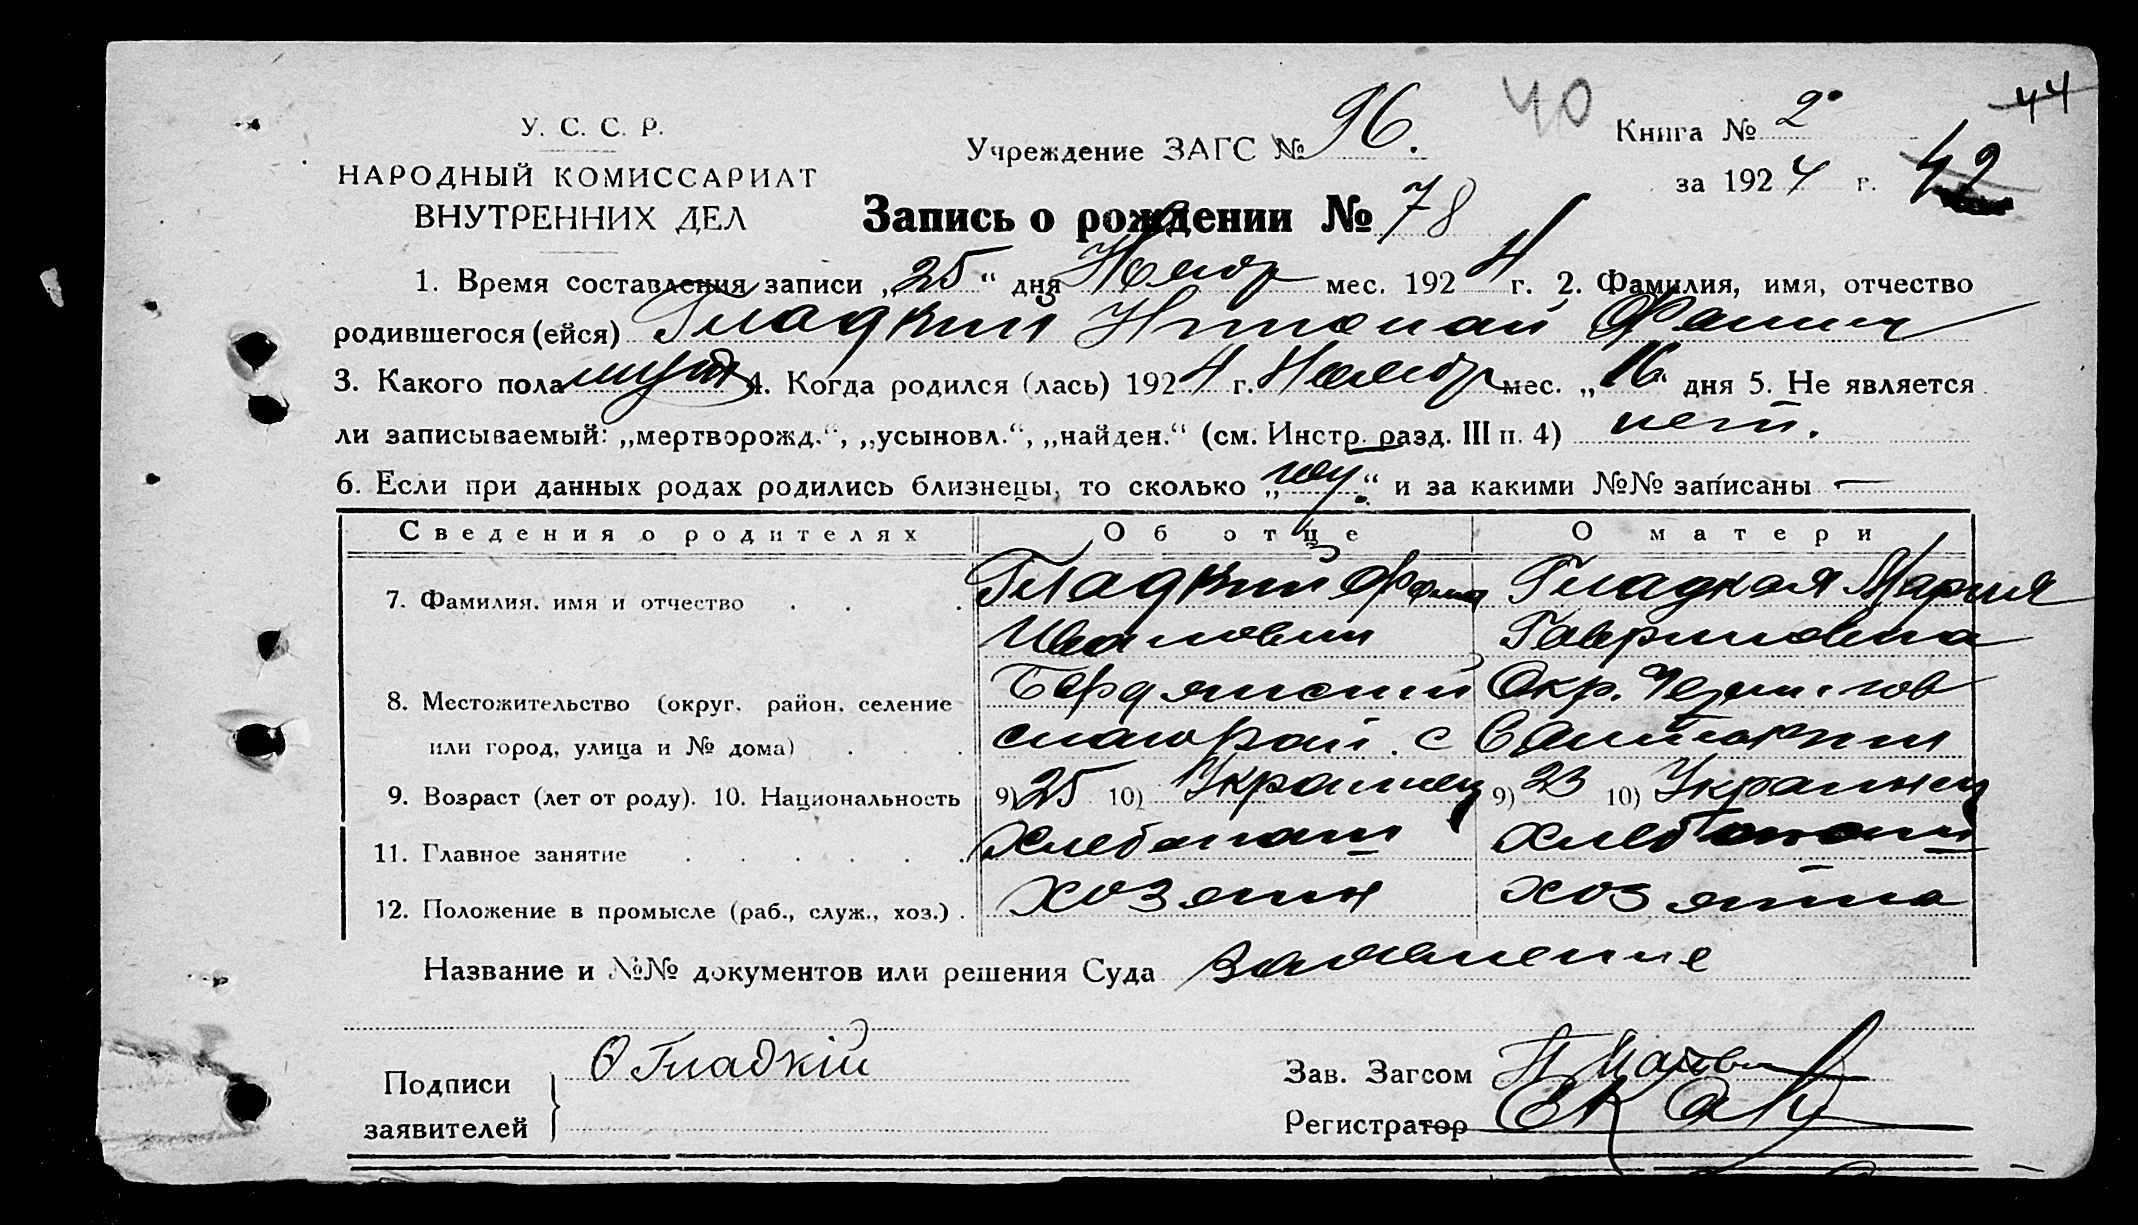 44
40
У. С. С. Р.
Учреждение ЗАГС № 96.
Книга № 2
НАРОДНЫЙ КОМИССАРИАТ
за 1924 г.
42
ВНУТРЕННИХ ДЕЛ
Запись о рождении № 78
1. Время составления записи „25“ дня Ноябр мес. 1924 г. 2. Фамилия, имя, отчество
родившегося (ейся) Гладкий Николай Фомич
3. Какого пола 4. Когда родился (лась) 1924 г. Ноябр мес. „16“ дня 5. Не является
ли записываемый: „мертворожд.“, „усыновл.“, „найден.“ (см. Инстр. разд. III п. 4) нет.
6. Если при данных родах родились близнецы, то сколько „ “ и за какими №№ записаны —
Сведения о родителях Об отце О матери
7. Фамилия, имя и отчество Гладкий Фома Гладкая Мария
Иванович Гавриловна
8. Местожительство (округ, район, селение Бердянский Окр. Чернигов
или город, улица и № дома) с
9. Возраст (лет от роду). 10. Национальность 9) 25 10) Украинец 9) 23 10) Украинец
11. Главное занятие Хлебопаш Хлебопаш
12. Положение в промысле (раб., служ., хоз.) хозяин хозяйка
Название и №№ документов или решения Суда Заявление
Подписи заявителей Ѳ Гладкій
Зав. Загсом
Регистратор